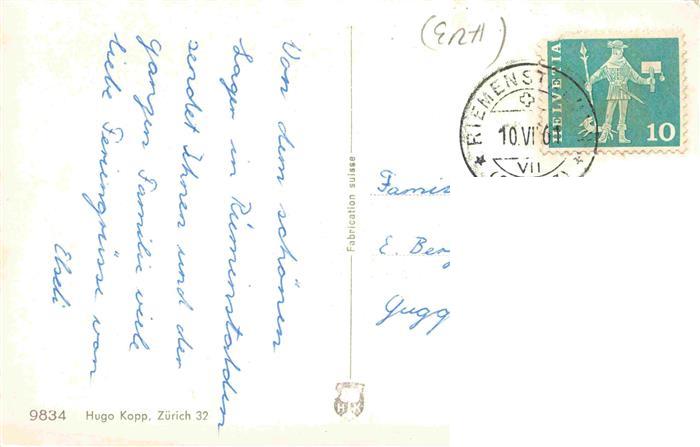 (ERH)
HELVETIA
10
RIEMENST
10.VI
VII
Von dem schönen
Lager in Riemenstalden
sendet Ihnen und der
ganzen Familie viele
liebe Feriengrüsse von
Elseli
Fabrication suisse
Famil
E. Berg
Gugg
HK
9834 Hugo Kopp, Zürich 32